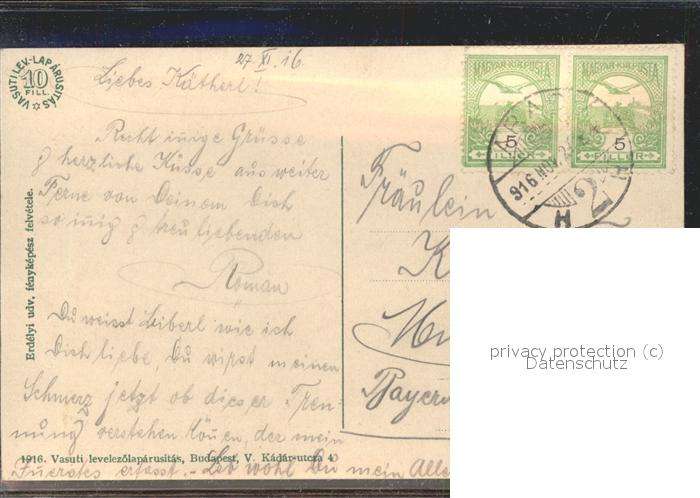 27 XI. 16
VASUTI LEV.-LAPÁRUSITÁS
10
FILL.
Liebes Kätherl!
MAGYAR KIR. POSTA
MAGYAR KIR. POSTA
5
5
FILLÉR
FILLÉR
ARAD
916 NOV
2
H
Recht innige Grüsse
& herzliche Küsse aus weiter
Ferne von Deinem Dich
so innig & treu liebenden
Roman
Du weisst Liberl wie ich
Dich liebe, Du wirst meinen
Schmerz jetzt ob dieser Tren-
nung verstehen können, der mein
erfasst. Leb wohl Du mein Alle
Fräulein
K
Bayer
Erdélyi udv. fényképész felvétele.
1916. Vasuti levelezőlapárusitás, Budapest, V. Kádár-utcza 4
privacy protection (c)
Datenschutz